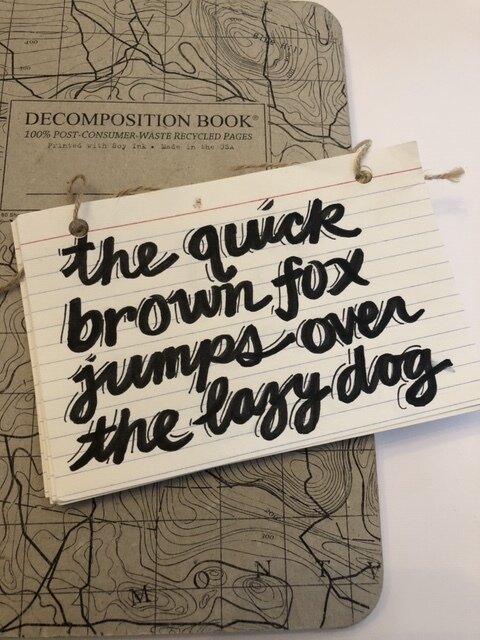 DECOMPOSITION BOOK®
100% POST-CONSUMER-WASTE RECYCLED PAGES
Printed with Soy Ink • Made in the USA
the quick
brown fox
jumps over
the lazy dog
M O N T Y